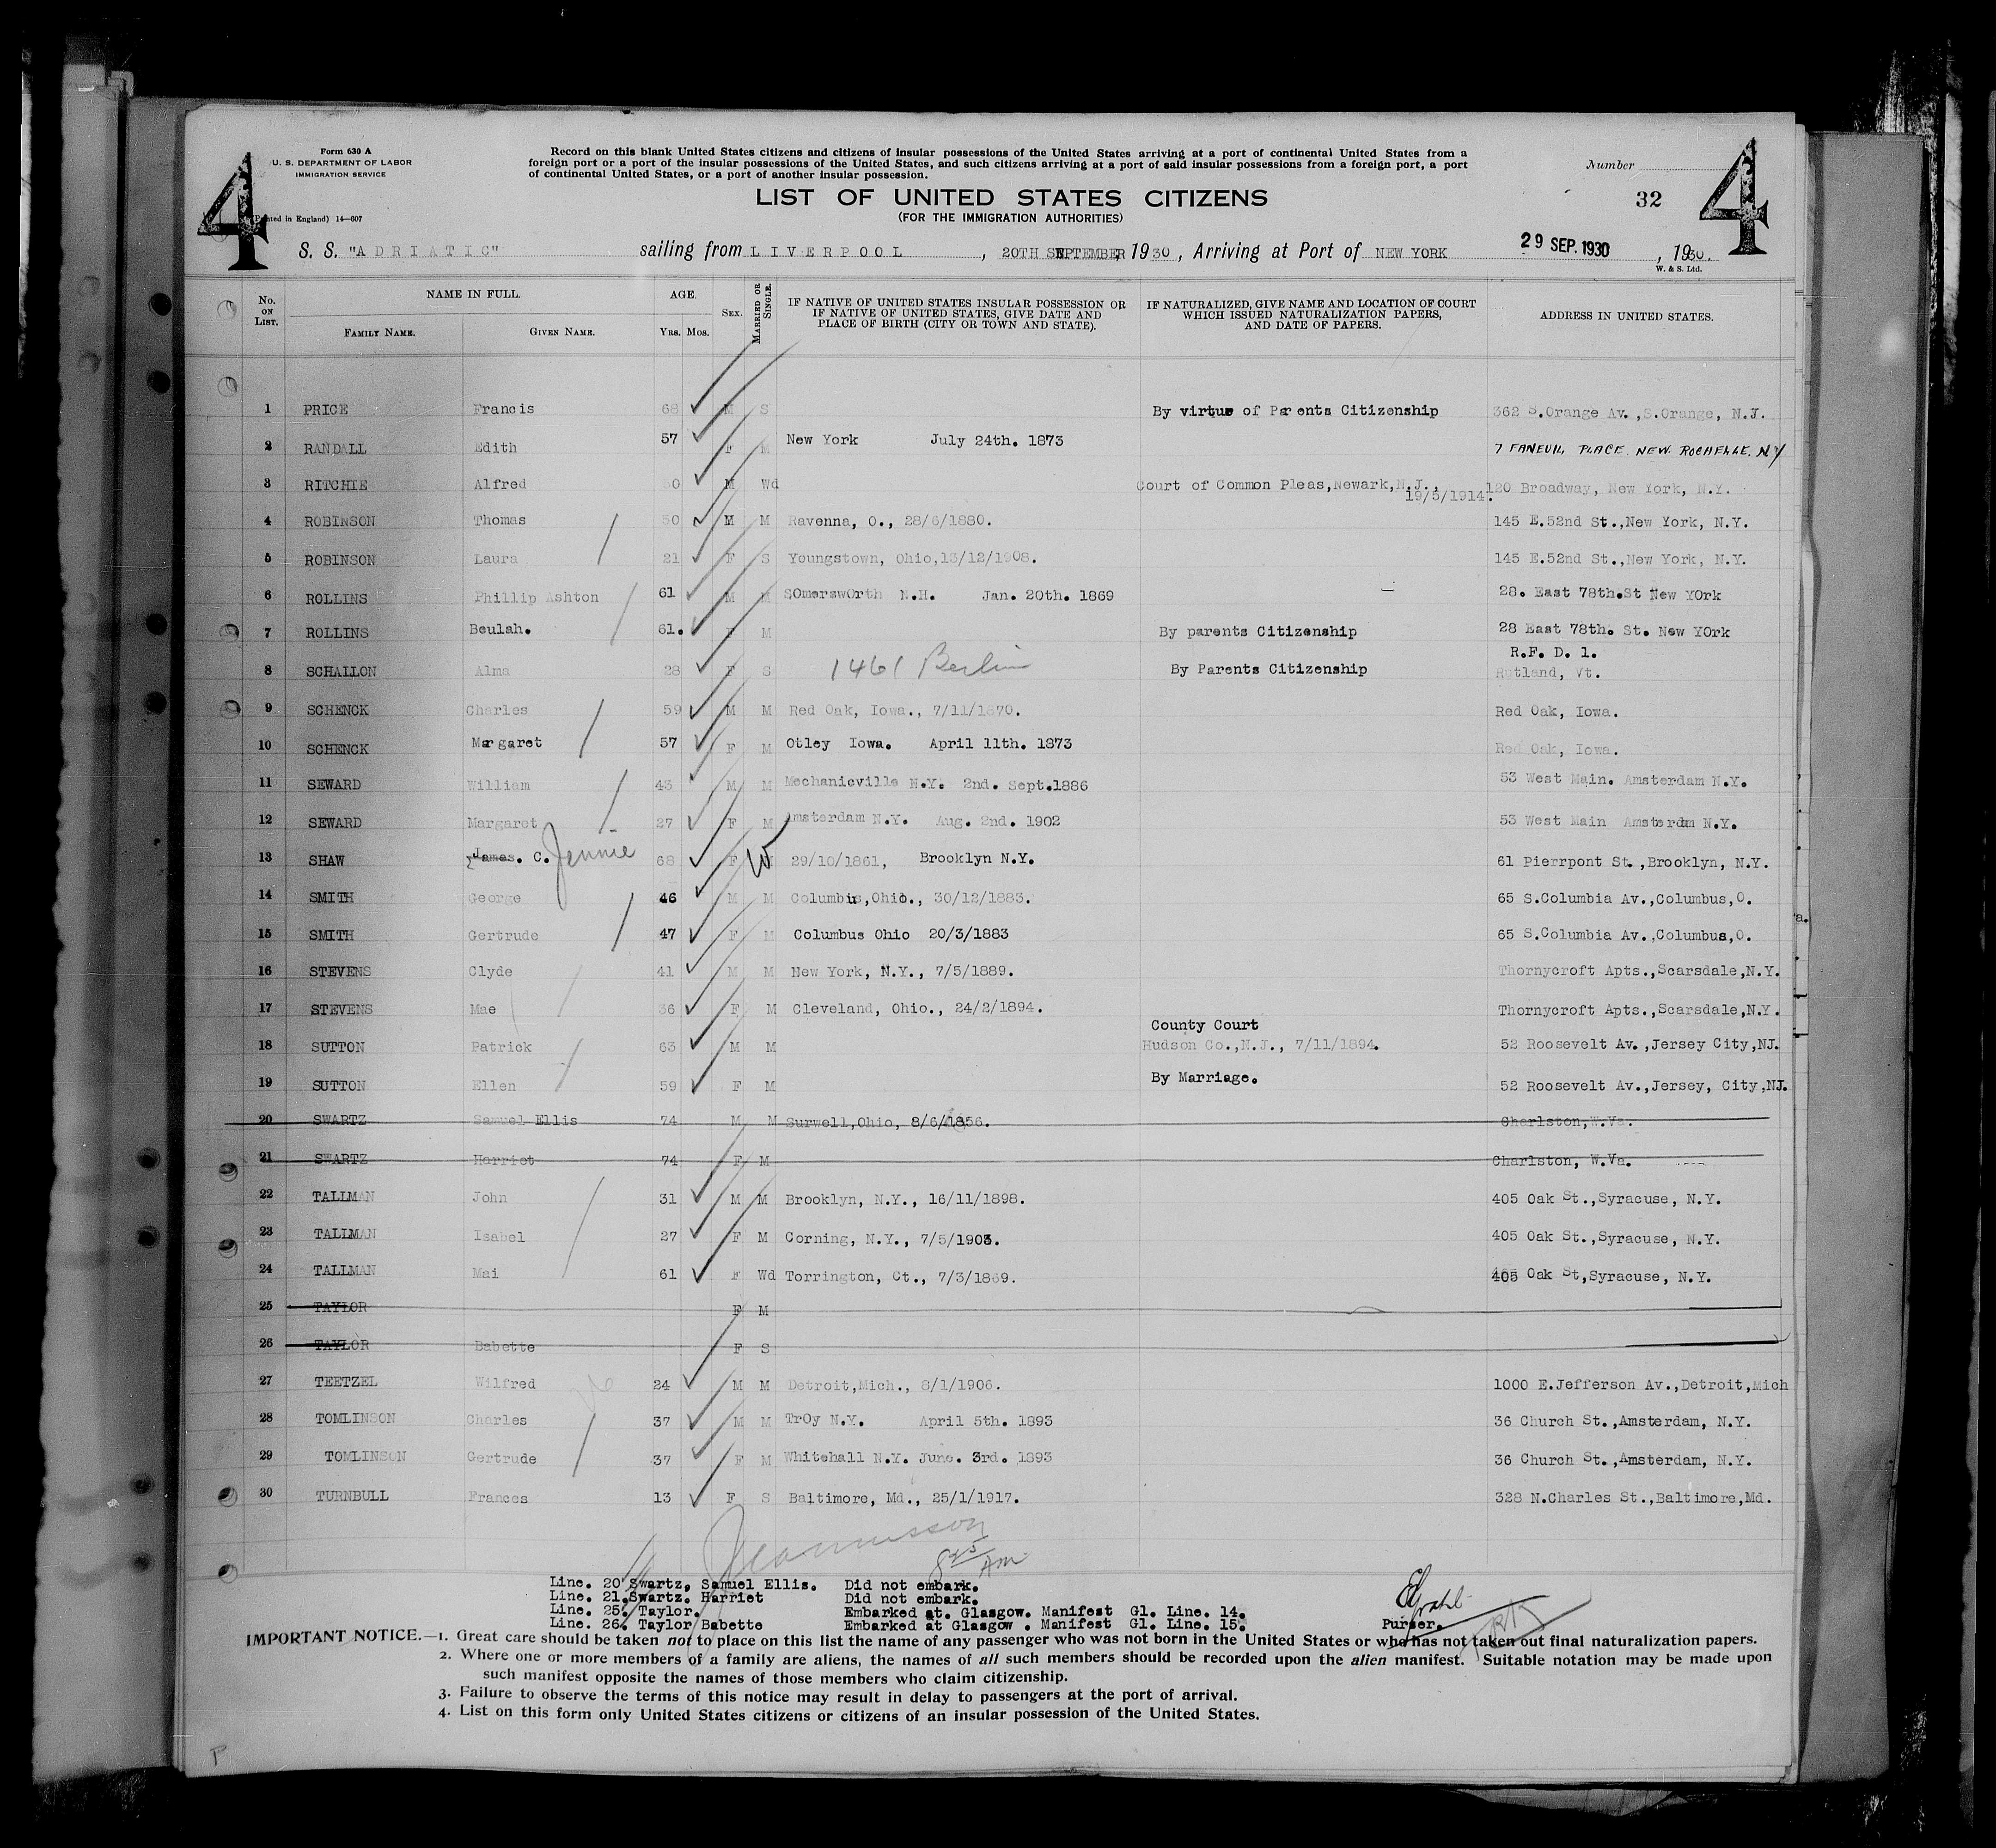 4
Form 630 A
U. S. DEPARTMENT OF LABOR
IMMIGRATION SERVICE
(Printed in England) 14—607
Record on this blank United States citizens and citizens of insular possessions of the United States arriving at a port of continental United States from a
foreign port or a port of the insular possessions of the United States, and such citizens arriving at a port of said insular possessions from a foreign port, a port
of continental United States, or a port of another insular possession.
LIST OF UNITED STATES CITIZENS
(FOR THE IMMIGRATION AUTHORITIES)
Number
32
4
S. S. "ADRIATIC" sailing from LIVERPOOL, 20TH SEPTEMBER, 1930, Arriving at Port of NEW YORK 29 SEP. 1930, 1930.
W. & S. Ltd.
No. ON LIST. NAME IN FULL. AGE. SEX. MARRIED OR SINGLE. IF NATIVE OF UNITED STATES INSULAR POSSESSION OR IF NATIVE OF UNITED STATES, GIVE DATE AND PLACE OF BIRTH (CITY OR TOWN AND STATE). IF NATURALIZED, GIVE NAME AND LOCATION OF COURT WHICH ISSUED NATURALIZATION PAPERS, AND DATE OF PAPERS. ADDRESS IN UNITED STATES.
FAMILY NAME. GIVEN NAME. Yrs. Mos.
1 PRICE Francis 68 M S By virtue of Parents Citizenship 362 S.Orange Av.,S.Orange, N.J.
2 RANDALL Edith 57 F M New York July 24th. 1873 7 FANEUIL PLACE. NEW ROCHELLE. NY
3 RITCHIE Alfred 50 M Wd Court of Common Pleas,Newark,N.J., 19/5/1914. 120 Broadway, New York, N.Y.
4 ROBINSON Thomas 50 M M Ravenna, O., 28/6/1880. 145 E.52nd St.,New York, N.Y.
5 ROBINSON Laura 21 F S Youngstown, Ohio,13/12/1908. 145 E.52nd St.,New York, N.Y.
6 ROLLINS Phillip Ashton 61 M M SOmerswOrth N.H. Jan. 20th. 1869 28. East 78th.St New YOrk
7 ROLLINS Beulah. 61. F M By parents Citizenship 28 East 78th. St. New YOrk
8 SCHALLON Alma 28 F S 1461 Berlin By Parents Citizenship R.F. D. 1. Rutland, Vt.
9 SCHENCK Charles 59 M M Red Oak, Iowa., 7/11/1870. Red Oak, Iowa.
10 SCHENCK Margaret 57 F M Otley Iowa. April 11th. 1873 Red Oak, Iowa.
11 SEWARD William 43 M M Mechanicville N.Y. 2nd. Sept.1886 53 West Main. Amsterdam N.Y.
12 SEWARD Margaret 27 F M Amsterdam N.Y. Aug. 2nd. 1902 53 West Main Amsterdm N.Y.
13 SHAW James. C. Jennie 68 F W 29/10/1861, Brooklyn N.Y. 61 Pierrpont St.,Brooklyn, N.Y.
14 SMITH George 46 M M Columbus,Ohio., 30/12/1883. 65 S.Columbia Av.,Columbus,O.
15 SMITH Gertrude 47 F M Columbus Ohio 20/3/1883 65 S.Columbia Av.,Columbus,O.
16 STEVENS Clyde 41 M M New York, N.Y., 7/5/1889. Thornycroft Apts.,Scarsdale,N.Y.
17 STEVENS Mae 36 F M Cleveland, Ohio., 24/2/1894. Thornycroft Apts.,Scarsdale,N.Y.
18 SUTTON Patrick 63 M M County Court Hudson Co.,N.J., 7/11/1894. 52 Roosevelt Av.,Jersey City,NJ.
19 SUTTON Ellen 59 F M By Marriage. 52 Roosevelt Av.,Jersey, City,NJ.
20 SWARTZ Samuel Ellis 74 M M Surwell,Ohio, 8/6/1856. Charlston,W.Va.
21 SWARTZ Harriet 74 F M Charlston, W.Va.
22 TALLMAN John 31 M M Brooklyn, N.Y., 16/11/1898. 405 Oak St.,Syracuse, N.Y.
23 TALLMAN Isabel 27 F M Corning, N.Y., 7/5/1903. 405 Oak St.,Syracuse, N.Y.
24 TALLMAN Mai 61 F Wd Torrington, Ct., 7/3/1869. 405 Oak St,Syracuse, N.Y.
25 TAYLOR F M
26 TAYLOR Babette F S
27 TEETZEL Wilfred 24 M M Detroit,Mich., 8/1/1906. 1000 E.Jefferson Av.,Detroit,Mich
28 TOMLINSON Charles 37 M M TrOy N.Y. April 5th. 1893 36 Church St.,Amsterdam, N.Y.
29 TOMLINSON Gertrude 37 F M Whitehall N.Y. June. 3rd. 1893 36 Church St.,Amsterdam, N.Y.
30 TURNBULL Frances 13 F S Baltimore, Md., 25/1/1917. 328 N.Charles St.,Baltimore,Md.
Line. 20 Swartz, Samuel Ellis. Did not embark.
Line. 21.Swartz. Harriet Did not embark.
Line. 25. Taylor. Embarked at. Glasgow. Manifest Gl. Line. 14.
Line. 26. Taylor Babette Embarked at Glasgow . Manifest Gl. Line. 15.
Purser.
IMPORTANT NOTICE.—1. Great care should be taken not to place on this list the name of any passenger who was not born in the United States or who has not taken out final naturalization papers.
2. Where one or more members of a family are aliens, the names of all such members should be recorded upon the alien manifest. Suitable notation may be made upon
such manifest opposite the names of those members who claim citizenship.
3. Failure to observe the terms of this notice may result in delay to passengers at the port of arrival.
4. List on this form only United States citizens or citizens of an insular possession of the United States.
P